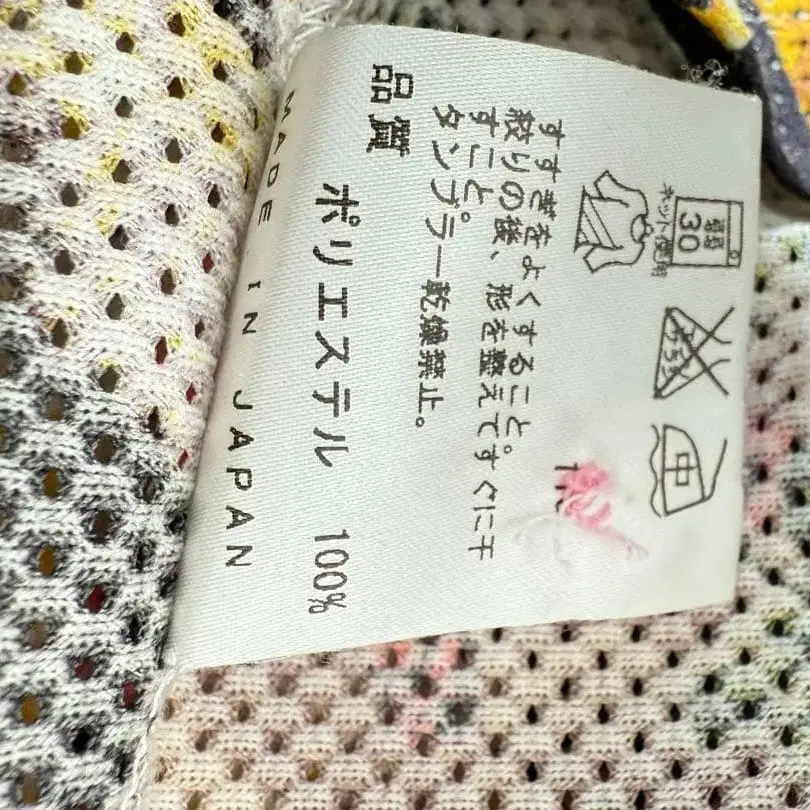 30
ネット使用
エンソサラシ
中
すすぎをよくすること。
絞りの後、形を整えてすぐに干
すこと。
タンブラー乾燥禁止。
品質
ポリエステル 100%
MADE IN JAPAN